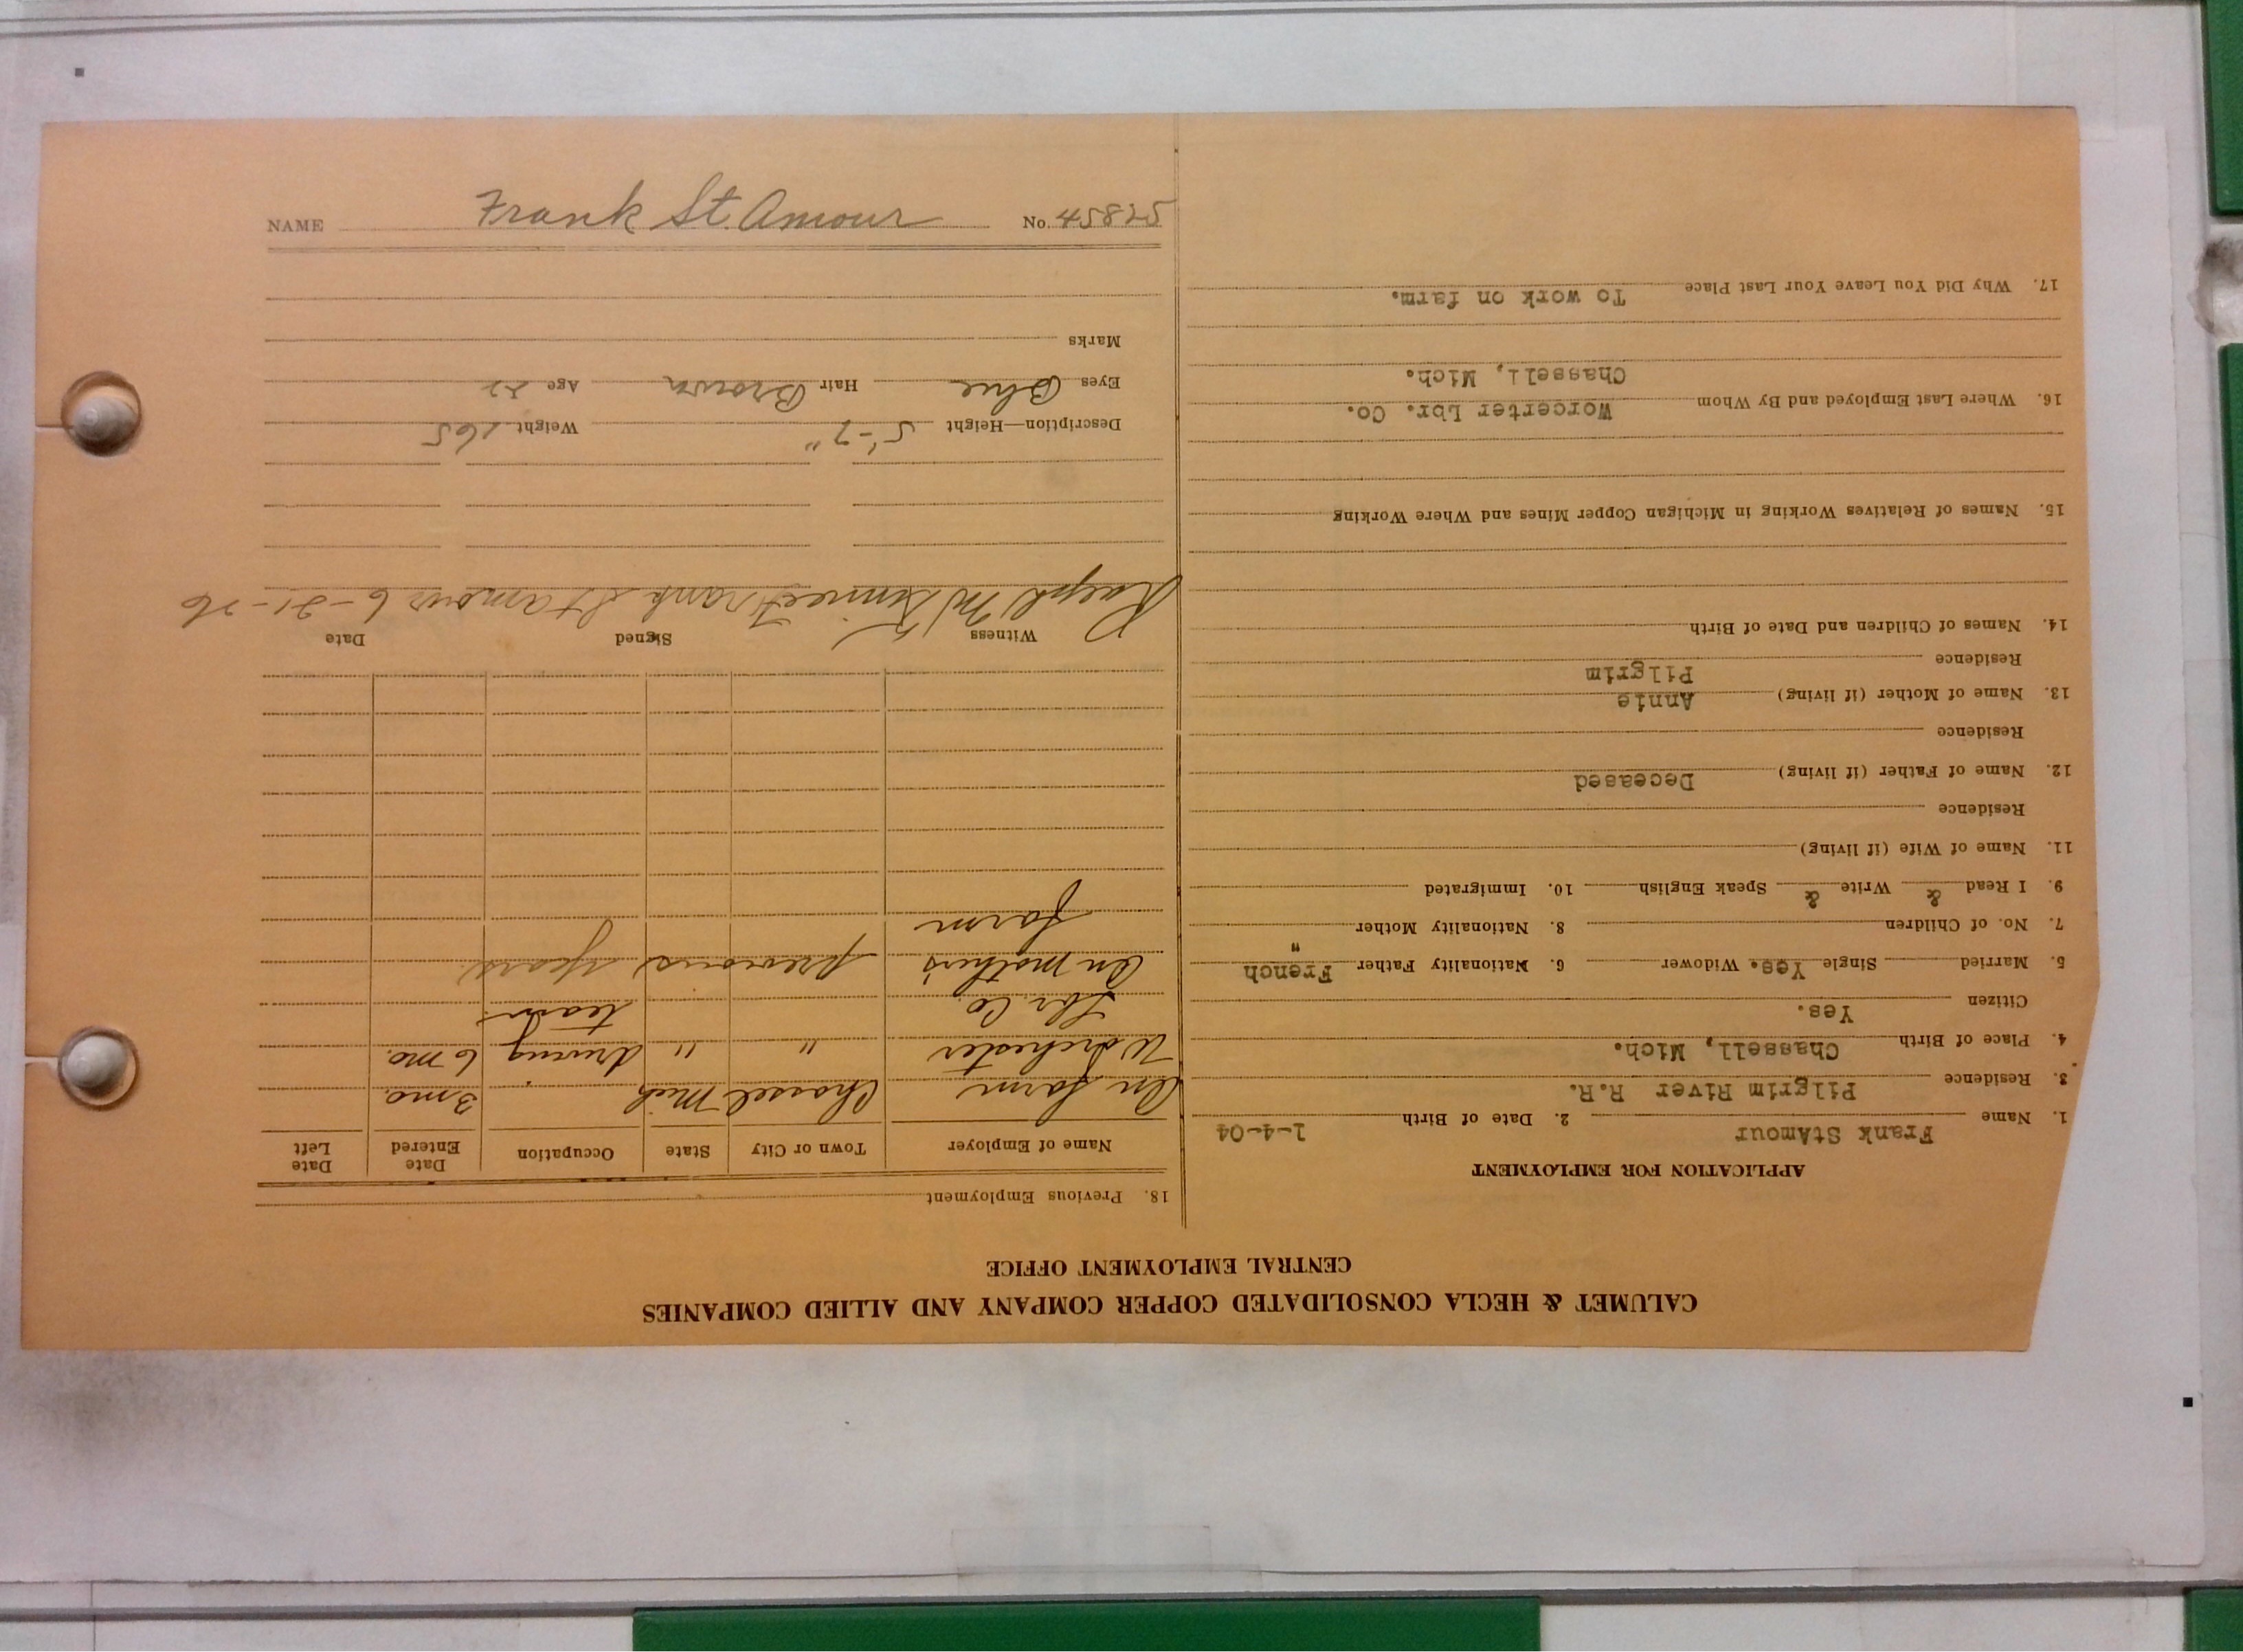 CALUMET & HECLA CONSOLIDATED COPPER COMPANY AND ALLIED COMPANIES
CENTRAL EMPLOYMENT OFFICE
APPLICATION FOR EMPLOYMENT
1. Name Frank StAmour 2. Date of Birth 1-4-04
3. Residence Pilgrim River R.R.
4. Place of Birth Chassell, Mich.
Citizen Yes.
5. Married Single Yes. Widower 6. Nationality Father French
7. No. of Children 8. Nationality Mother "
9. I Read & Write & Speak English 10. Immigrated
11. Name of Wife (if living)
Residence
12. Name of Father (if living) Deceased
Residence
13. Name of Mother (if living) Annie
Residence Pilgrim
14. Names of Children and Date of Birth
15. Names of Relatives Working in Michigan Copper Mines and Where Working
16. Where Last Employed and By Whom Worcerter Lbr. Co.
Chassell, Mich.
17. Why Did You Leave Your Last Place To work on farm.
18. Previous Employment
Name of Employer Town or City State Occupation Date Entered Date Left
On farm Chassel Mich 3 mo.
Worchester " " driving 6 mo.
Lbr. Co. team.
On mother's previous years
farm
Witness Signed Date
Ralph Frank St amour 6-21-26
Description—Height 5'-7" Weight 165
Eyes Blue Hair Brown Age 22
Marks
NAME Frank St. Amour No. 45825